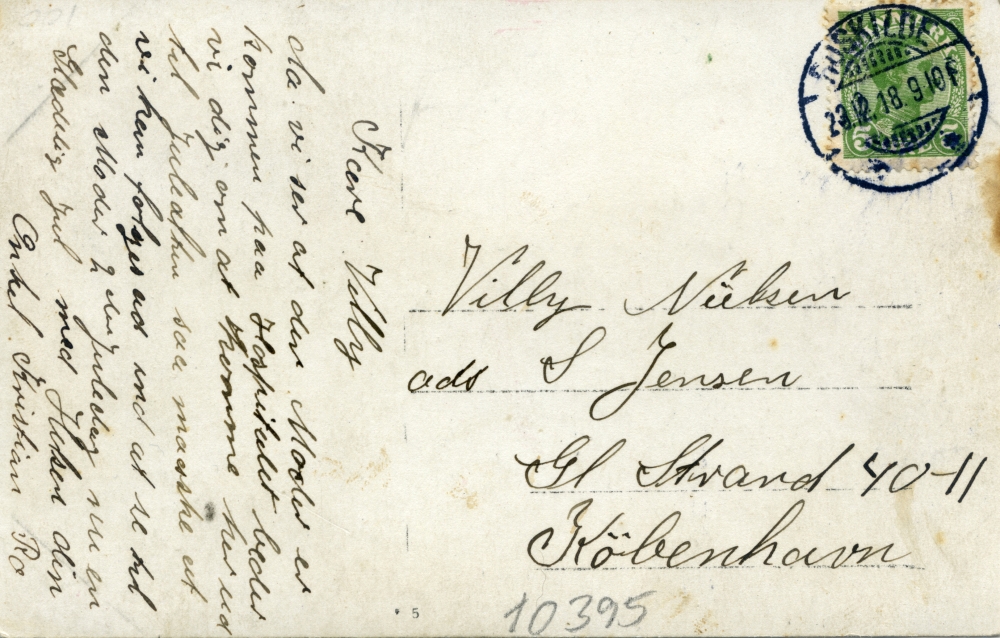 Kære Villy
da vi ser at din Moder er
kommen paa Hospitalet beder
vi dig om at komme her ud
til Juleaften saa maaske at
vi kan følges ad ind at se til
din Moder 2 den Juledag nu en
Glædelig jul med Hilsen din
Onkel Kristian Ro
Villy Nielsen
ads S Jensen
Gl Strand 40-II
København
ROSKILDE
23.12.18. 9-10 F
5 5
10395
5